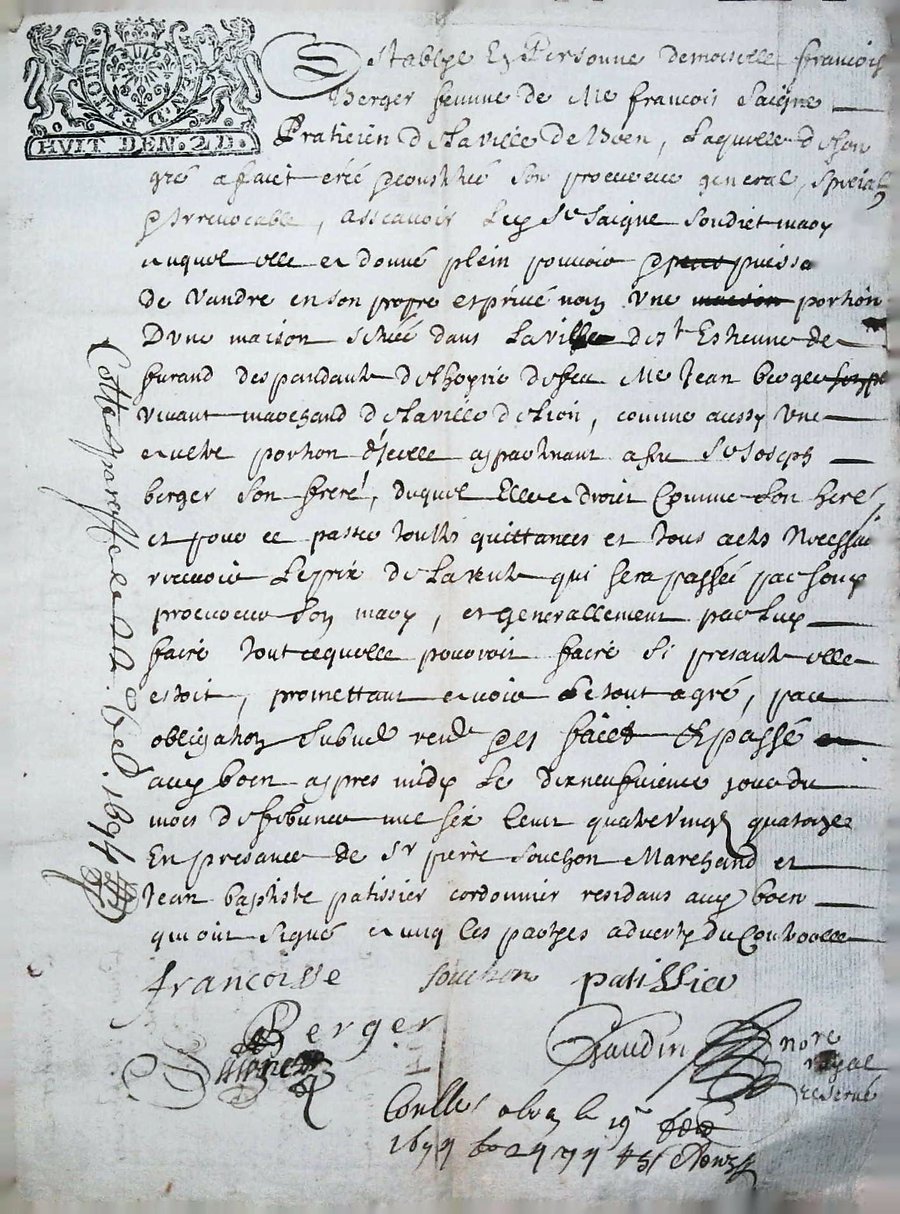 HVIT DEN. 2 D.
Establye En Personne demoiselle francois
Berger femme de Me francois Saigne
Praticien de la ville de Boen, Laquelle de son
gré a faict créé son procureur general, special
Irrevocable, asscavoir Sr Saigne Sondict mary
auquel elle a donné plein pouvoir puissa
de vandre en son propre et privé nom vne maison portion
Dvne maison Scituée dans La ville de st Estienne de
furand despendante de lhoyrie de feu Me Jean berger
vivant marchand de la ville de Lion, comme aussy vne
autre portion d'Jcelle appartenant a feu Sr Joseph
berger Son freré, duquel Elle a droict Comme Son heré
et pour ce passer toutes quittances et tous actes Necessai
recevoir Le prix de La vente qui sera passéé par
procureur Son mary, et generallement par Luy
fairé tout ce quelle pouvoit fairé Si presante elle
estoit, promettant avoir Le tout agré, par
obligation faict & passé
auy boen appres midy Le dixneufvieme jour du
mois de febvrier mil six Cent quatre vingt quatorze
En presance de Sr pierre Souchon Marchand et
Jean baptiste patissier cordonnier residans auy boen
qui ont Signé avec les partyes adverty du Controolle
francoisse Souchon patissier
Berger
Chaudin nore
royal
reservé
Conlle a boen le 19 feb
1694
Cotté paraffé 1694